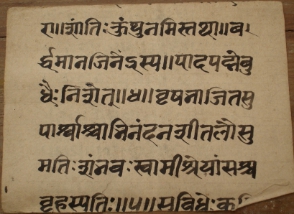 रा॥शांतिः कुंथुनमिस्तथा॥व
र्द्धमानजिनेंद्रस्य॥पादपद्मेबु
धैः निशेत्॥४॥वृषभाजितसु
पार्श्वाश्चाभिनंदनशीतलौसु
मतिः शंभवः स्वामीश्रेयांसश्च
वृहस्पतिः॥५॥सुविधेः